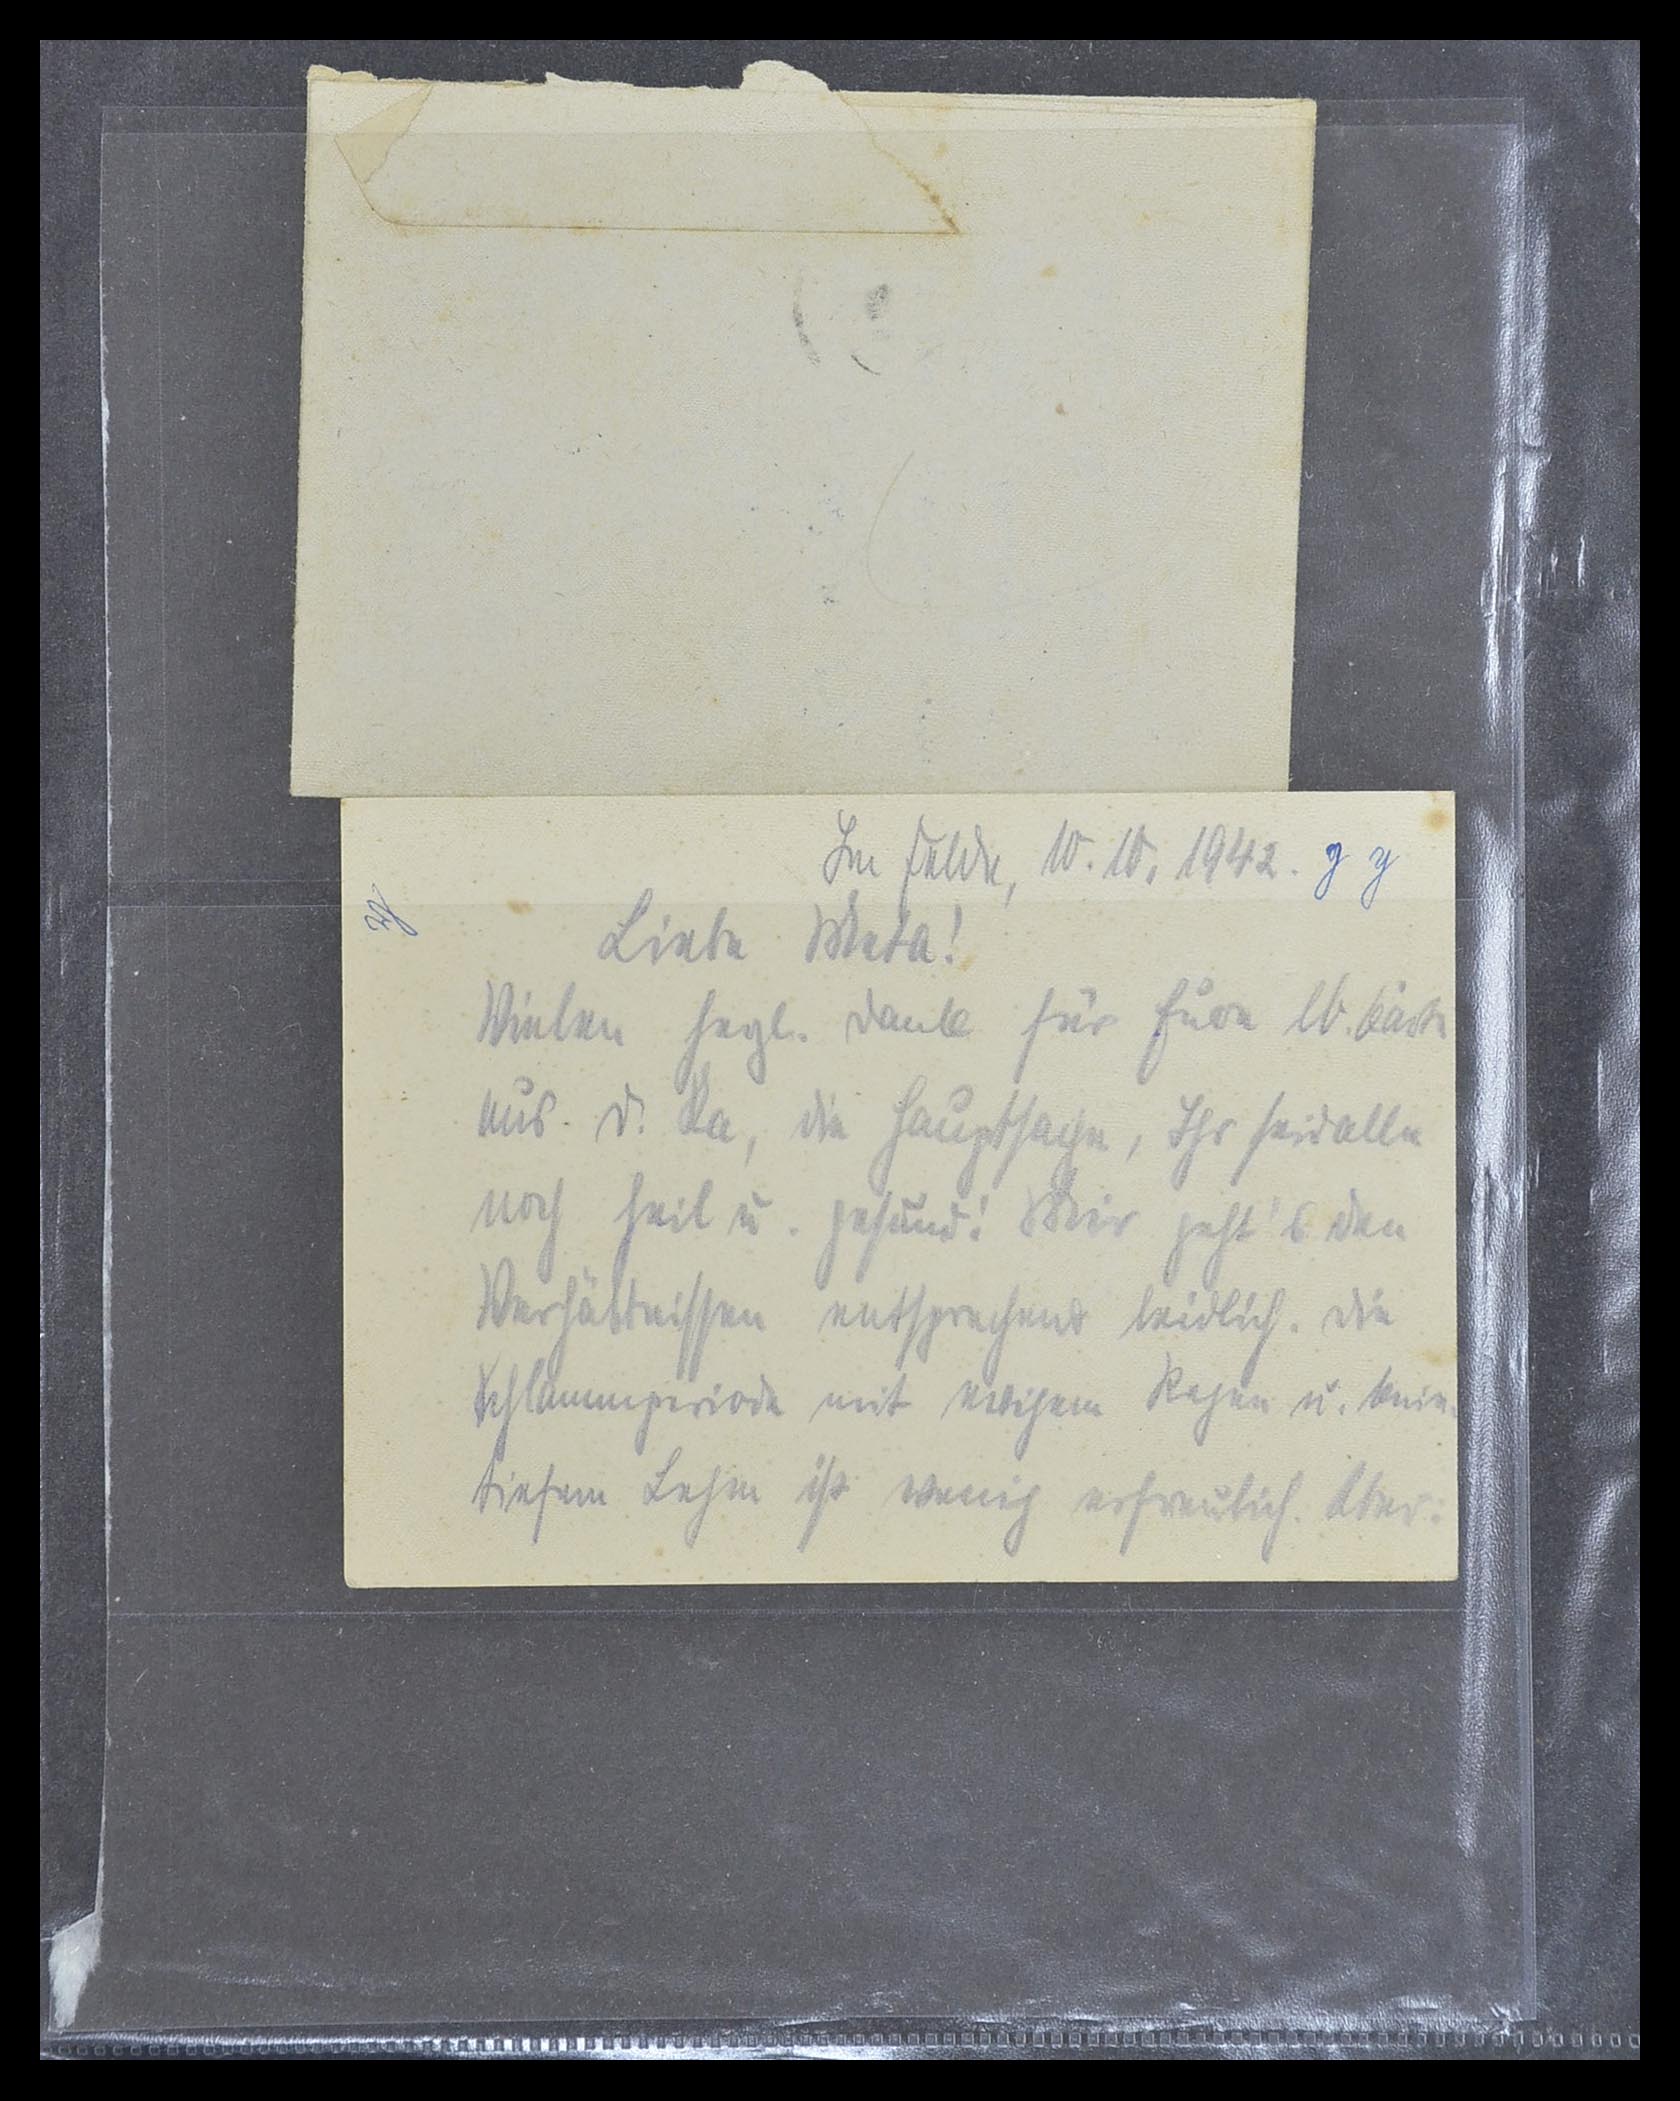 Im Felde, 10.10.1942.
Liebe Meta!
Vielen herzl. Dank für Eure lb. Karte
aus d. Ka, die Hauptsache, Ihr seid alle
noch heil u. gesund! Mir geht's den
Verhältnissen entsprechend leidlich. Die
Schlammperiode mit ewigem Regen u. knie-
tiefem Lehm ist wenig erfreulich. Aber: